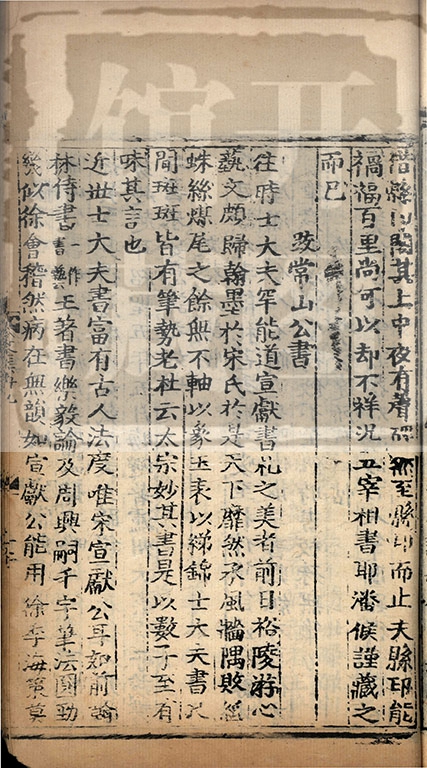 縣以閣其上中夜有着至縣印而止夫縣印能
禍福百里尚可以却不祥況五宰相書耶潘候謹藏之
而已
跋常山公書
往時士大夫罕能道宣獻書札之美者前日裕陵游心
藝文頗歸翰墨於宋氏於是天下靡然承風牆隅敗
蛛絲煤尾之餘無不軸以象玉表以綈錦士大夫書尺
間斑斑皆有筆勢老杜云太宗妙其書是以數子至有
味其言也
近世士大夫書富有古人法度唯宋宣獻公耳如前翰
林侍書一作書藝王著書樂毅論及周興嗣千字筆法圓勁
幾似徐會稽然病在無韻如宣獻公能用徐季海策莫